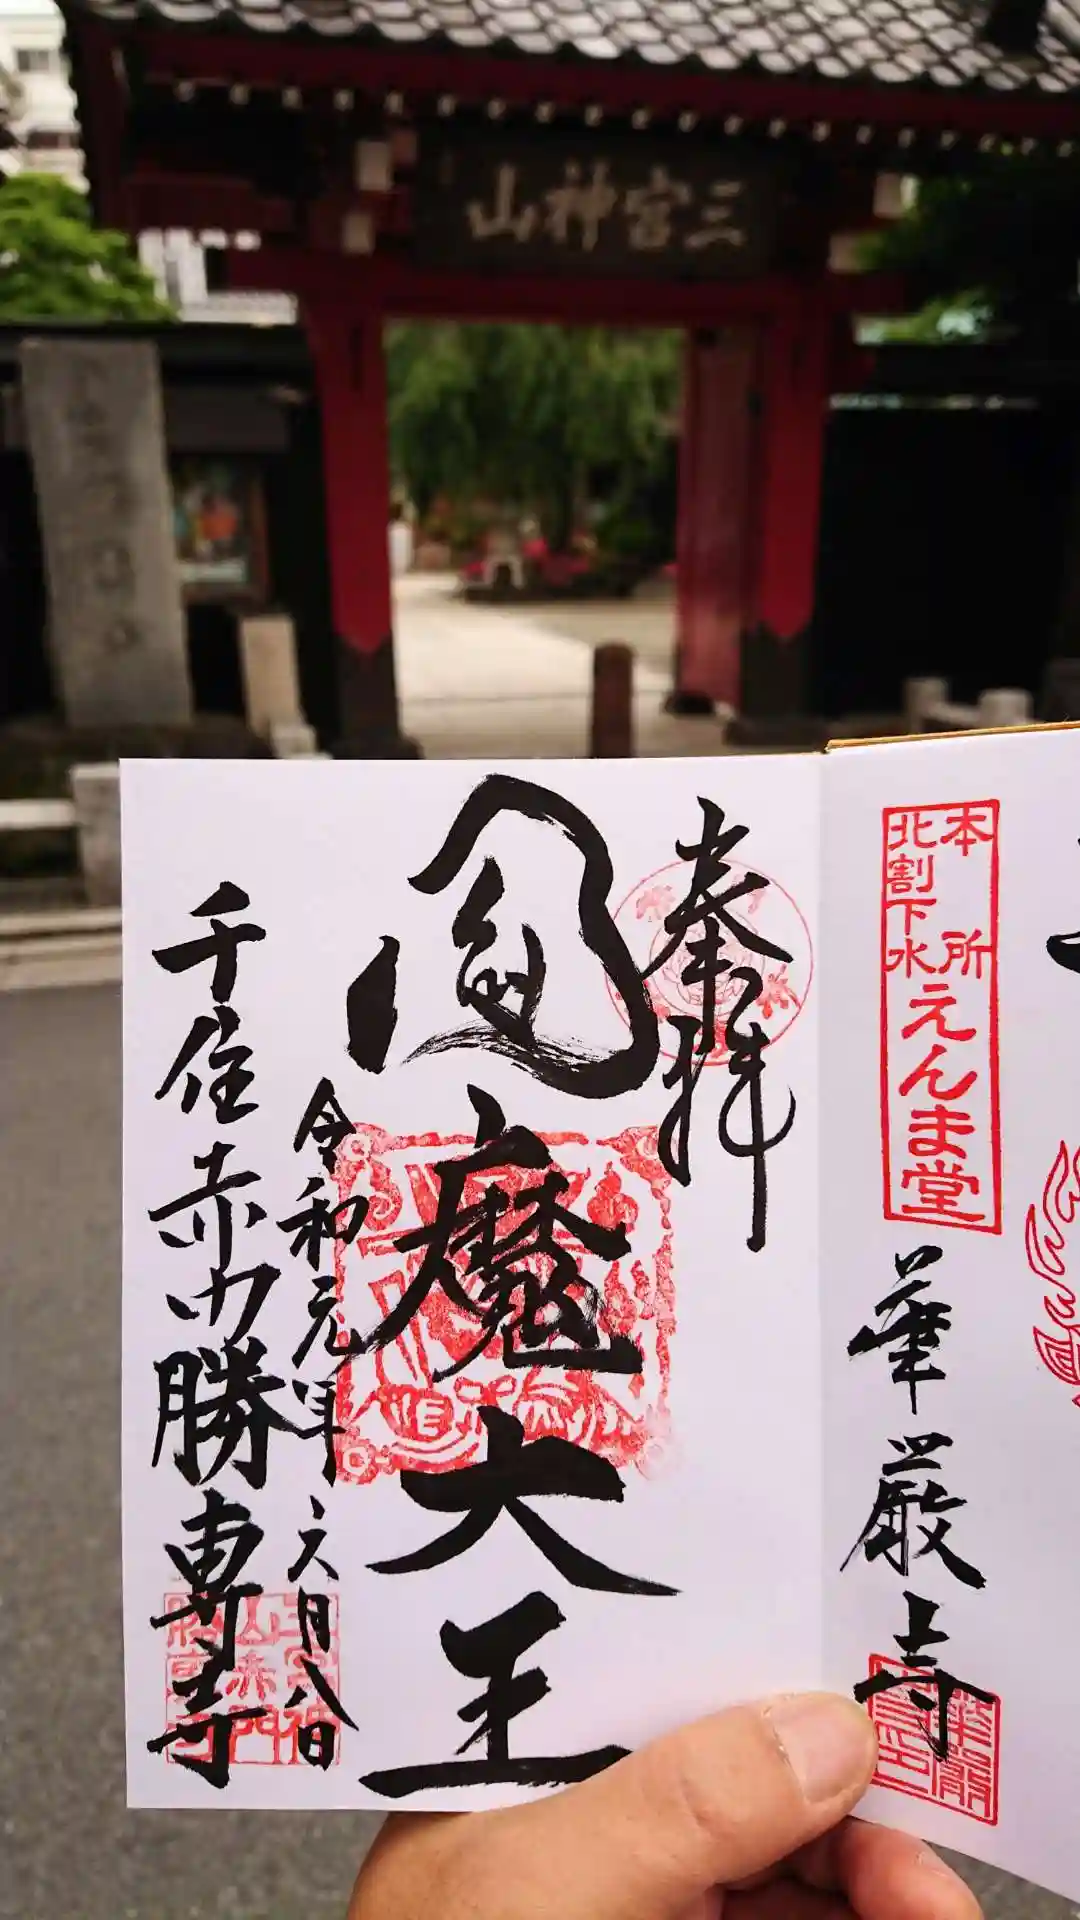 三宮神山
本所
北割下水
えんま堂
華厳寺
奉拝
閻魔大王
令和元年六月八日
千住赤門勝専寺